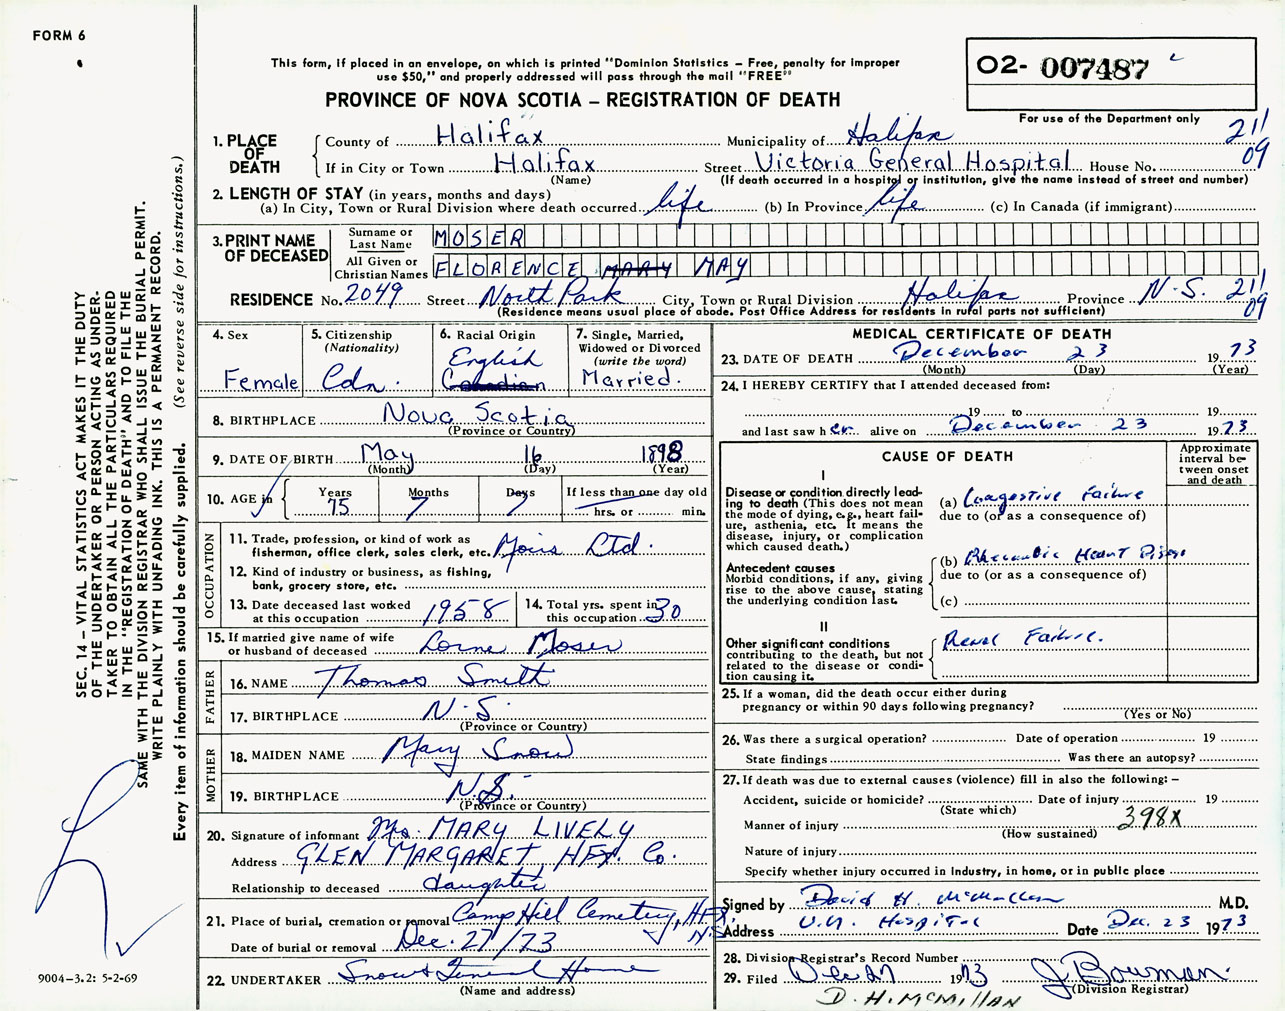 FORM 6
This form, if placed in an envelope, on which is printed "Dominion Statistics – Free, penalty for improper
use $50," and properly addressed will pass through the mail "FREE"
PROVINCE OF NOVA SCOTIA – REGISTRATION OF DEATH
02- 007487
For use of the Department only
211
09
1. PLACE OF DEATH
County of Halifax Municipality of Halifax
If in City or Town Halifax Street Victoria General Hospital House No.
(Name) (If death occurred in a hospital or institution, give the name instead of street and number)
2. LENGTH OF STAY (in years, months and days)
(a) In City, Town or Rural Division where death occurred life (b) In Province life (c) In Canada (if immigrant)
3. PRINT NAME OF DECEASED
Surname or Last Name MOSER
All Given or Christian Names FLORENCE MARY MAY
RESIDENCE No. 2049 Street North Park City, Town or Rural Division Halifax Province N.S. 211
09
(Residence means usual place of abode. Post Office Address for residents in rural parts not sufficient)
4. Sex Female
5. Citizenship (Nationality) Cdn.
6. Racial Origin English Canadian
7. Single, Married, Widowed or Divorced (write the word) Married.
8. BIRTHPLACE Nova Scotia
(Province or Country)
9. DATE OF BIRTH May 16 1898
(Month) (Day) (Year)
10. AGE in Years 75 Months 7 Days 7 If less than one day old
hrs. or min.
OCCUPATION
11. Trade, profession, or kind of work as
fisherman, office clerk, sales clerk, etc. Moirs Ltd.
12. Kind of industry or business, as fishing,
bank, grocery store, etc.
13. Date deceased last worked at this occupation 1958
14. Total yrs. spent in this occupation 30
15. If married give name of wife
or husband of deceased Lorne Moser
FATHER
16. NAME Thomas Smith
17. BIRTHPLACE N.S.
(Province or Country)
MOTHER
18. MAIDEN NAME Mary Snow
19. BIRTHPLACE N.S.
(Province or Country)
20. Signature of informant Mrs. MARY LIVELY
Address GLEN MARGARET, HFX. Co.
Relationship to deceased daughter
21. Place of burial, cremation or removal Camp Hill Cemetery, HFX
N.S.
Date of burial or removal Dec. 27/73
22. UNDERTAKER Snow's Funeral Home
(Name and address)
MEDICAL CERTIFICATE OF DEATH
23. DATE OF DEATH December 23 1973
(Month) (Day) (Year)
24. I HEREBY CERTIFY that I attended deceased from:
19 to 19
and last saw her alive on December 23 1973
CAUSE OF DEATH
Approximate interval between onset and death
I
Disease or condition directly leading to death (This does not
mean the mode of dying, e.g., heart failure, asthenia, etc. It means the
disease, injury, or complication
which caused death.)
(a) Congestive Failure
due to (or as a consequence of)
Antecedent causes
Morbid conditions, if any, giving
rise to the above cause, stating
the underlying condition last.
(b) Rheumatic Heart Disease
due to (or as a consequence of)
(c)
II
Other significant conditions
contributing to the death, but not
related to the disease or condition
causing it.
Renal Failure.
25. If a woman, did the death occur either during
pregnancy or within 90 days following pregnancy?
(Yes or No)
26. Was there a surgical operation? Date of operation 19
State findings Was there an autopsy?
27. If death was due to external causes (violence) fill in also the following: –
Accident, suicide or homicide? Date of injury 19
(State which)
Manner of injury 398X
(How sustained)
Nature of injury
Specify whether injury occurred in industry, in home, or in public place
Signed by David H. McMillan M.D.
Address V.G. Hospital Date Dec. 23 1973
28. Division Registrar's Record Number
29. Filed Dec 27 1973 J Bowman.
(Division Registrar)
D. H. MCMILLAN
SEC. 14 – VITAL STATISTICS ACT MAKES IT THE DUTY
OF THE UNDERTAKER OR PERSON ACTING AS UNDER-
TAKER TO OBTAIN ALL THE PARTICULARS REQUIRED
IN THE "REGISTRATION OF DEATH" AND TO FILE THE
SAME WITH THE DIVISION REGISTRAR WHO SHALL ISSUE THE BURIAL PERMIT.
WRITE PLAINLY WITH UNFADING INK. THIS IS A PERMANENT RECORD.
Every item of information should be carefully supplied. (See reverse side for instructions.)
9004–3.2: 5-2-69